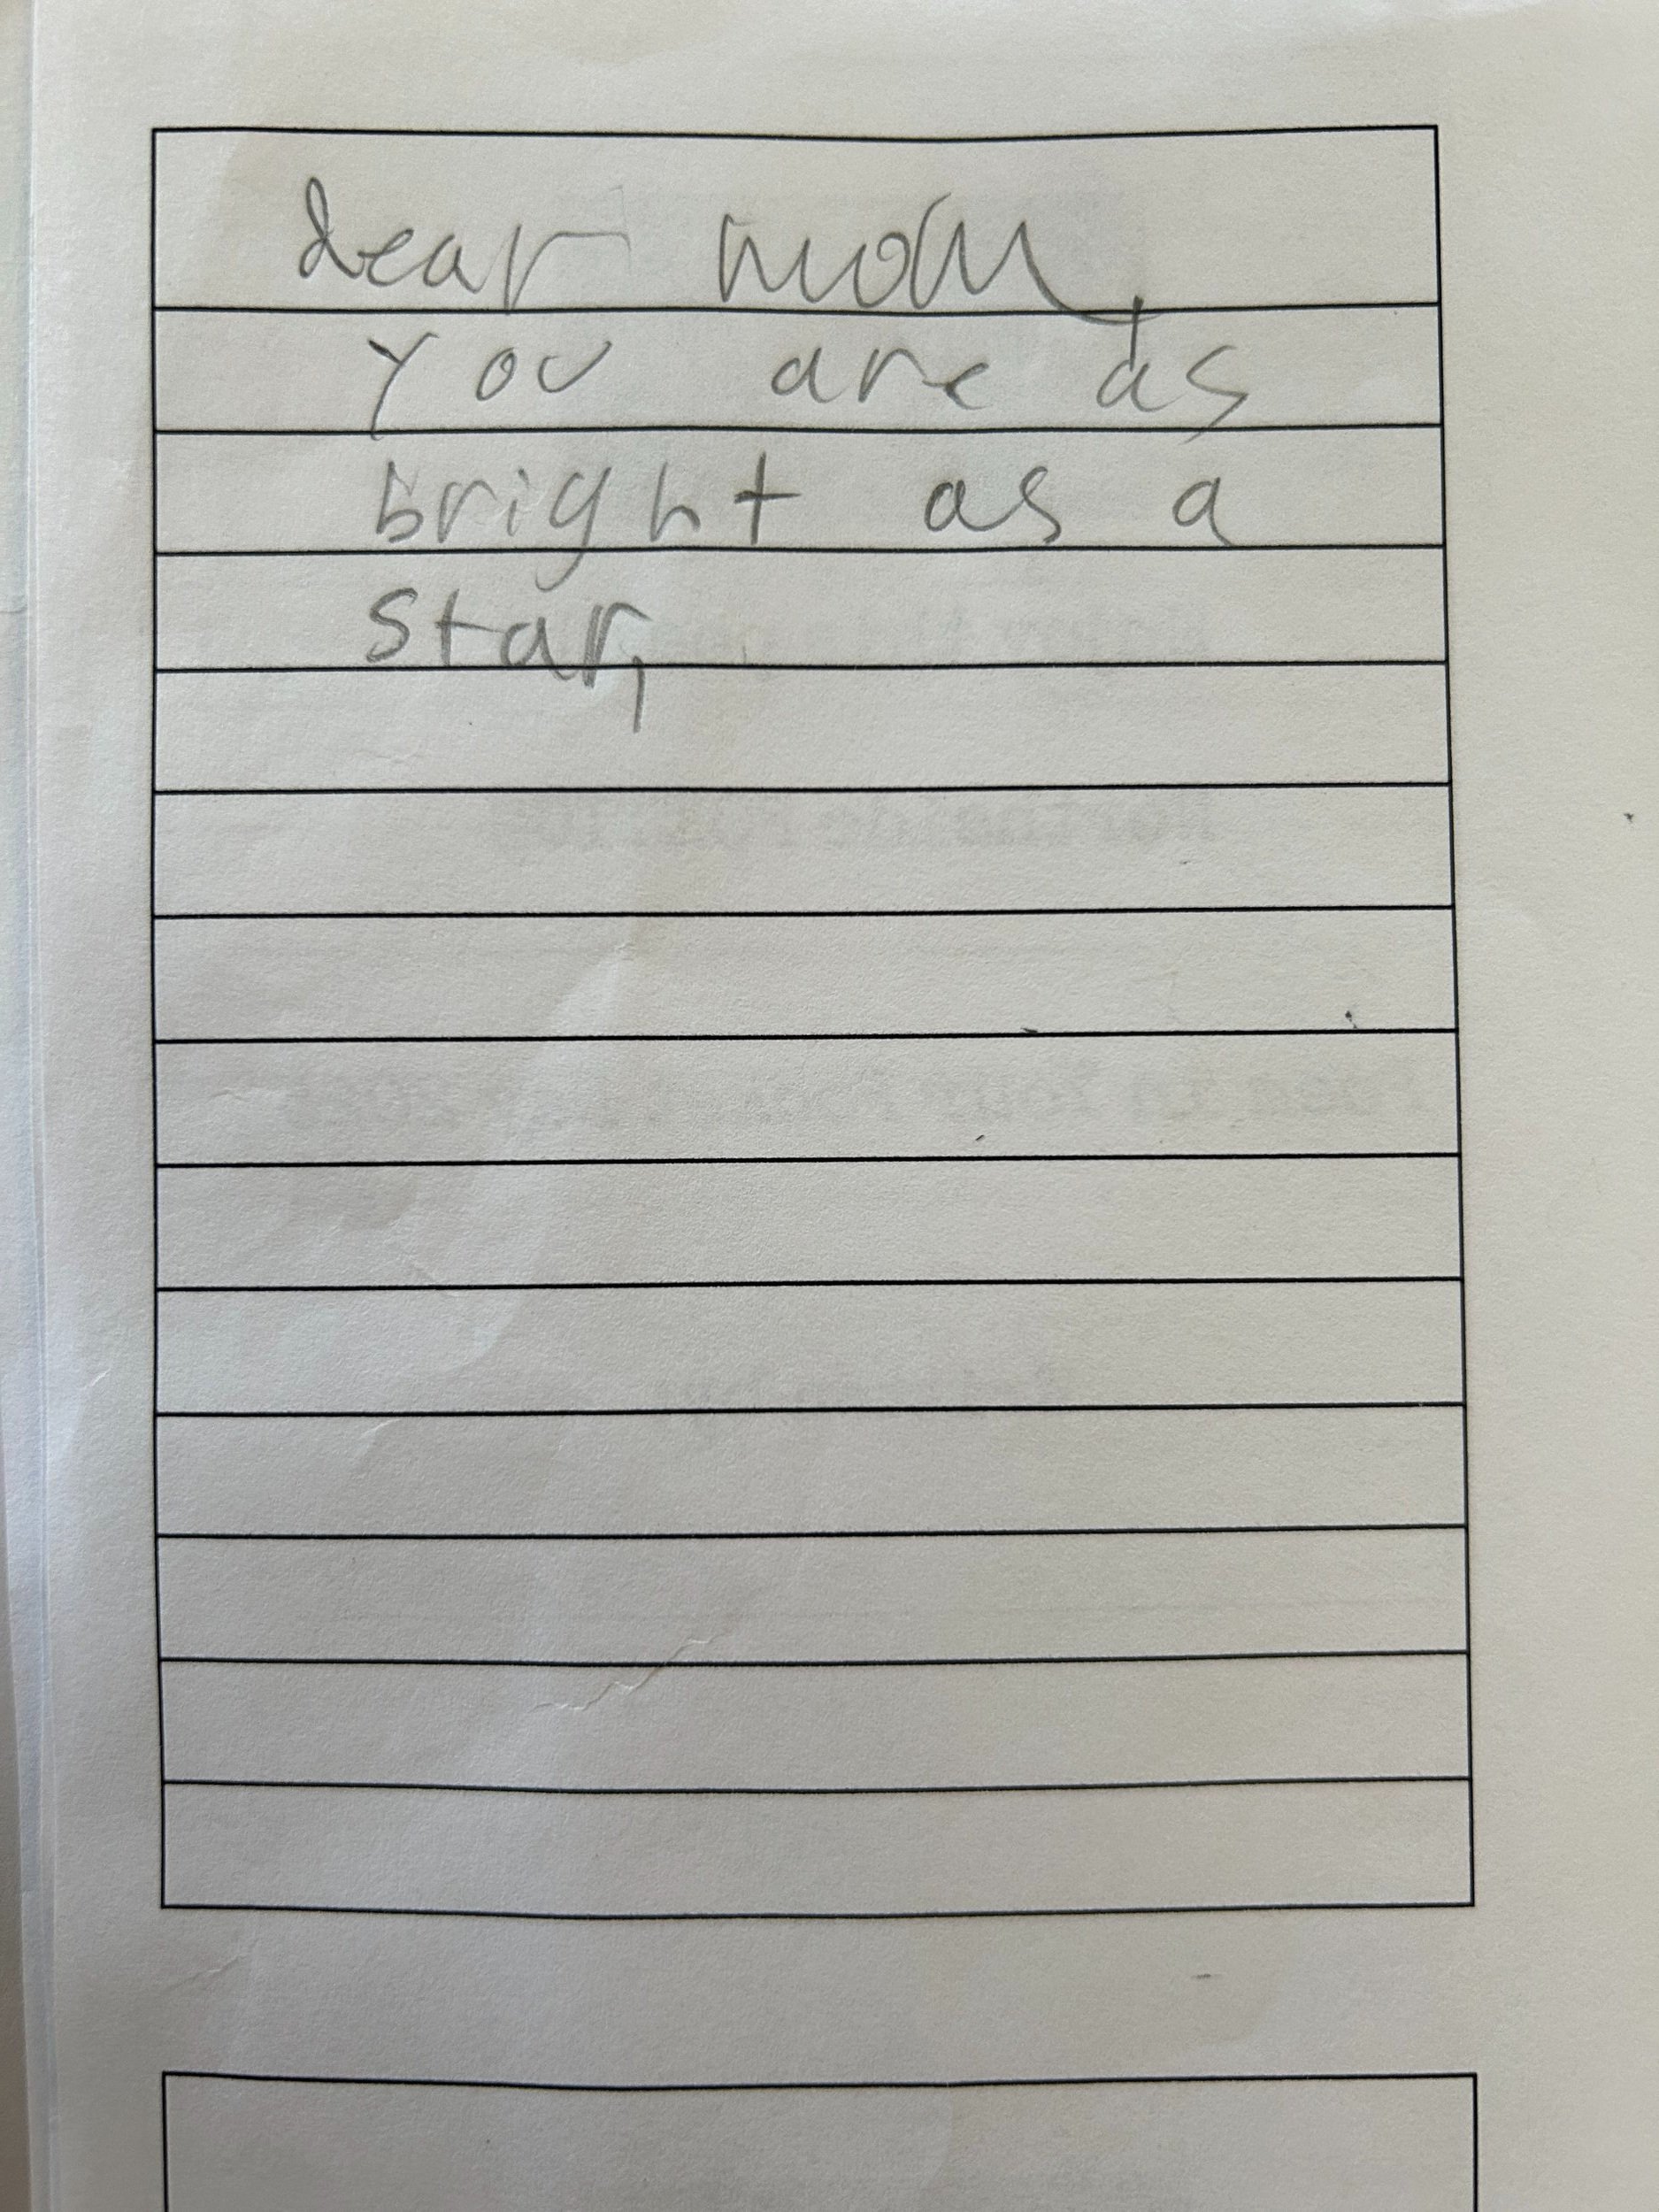 dear mom,
you are as
bright as a
star,